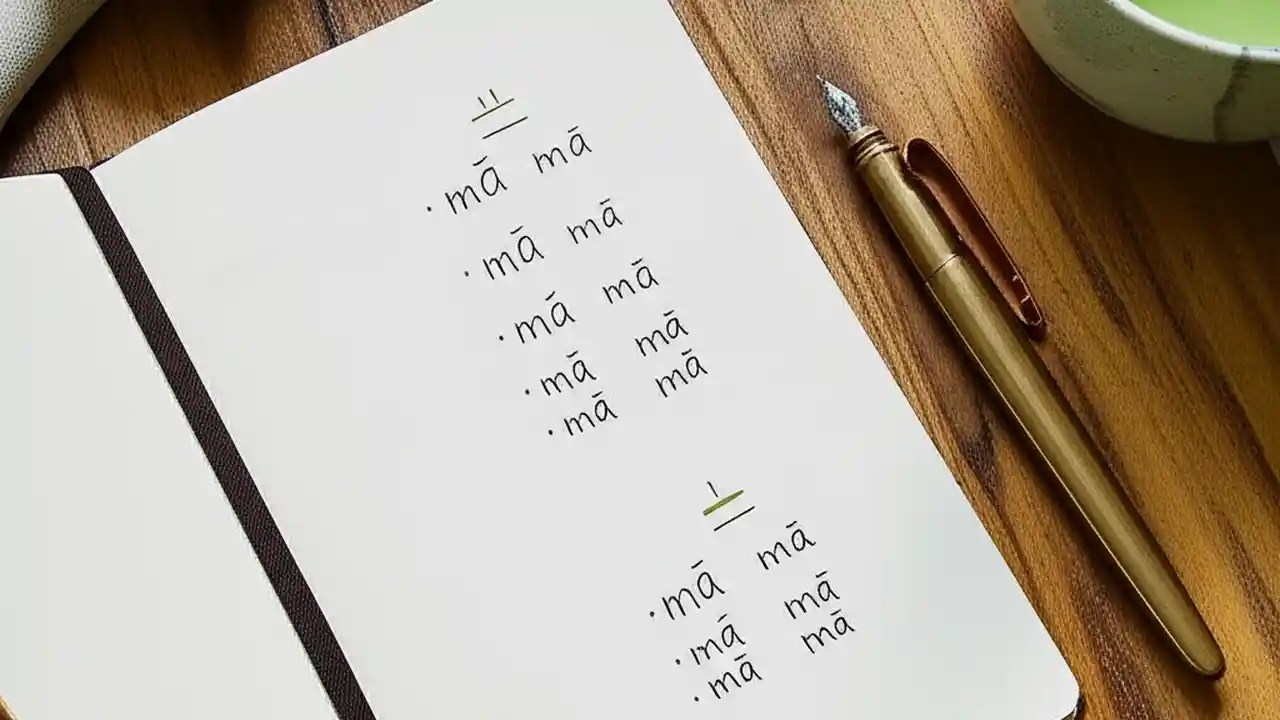 · mā mā
· mā mā
· mā mā
· mā mā
· mā mā
· mā mā
· mā mā
· mā mā